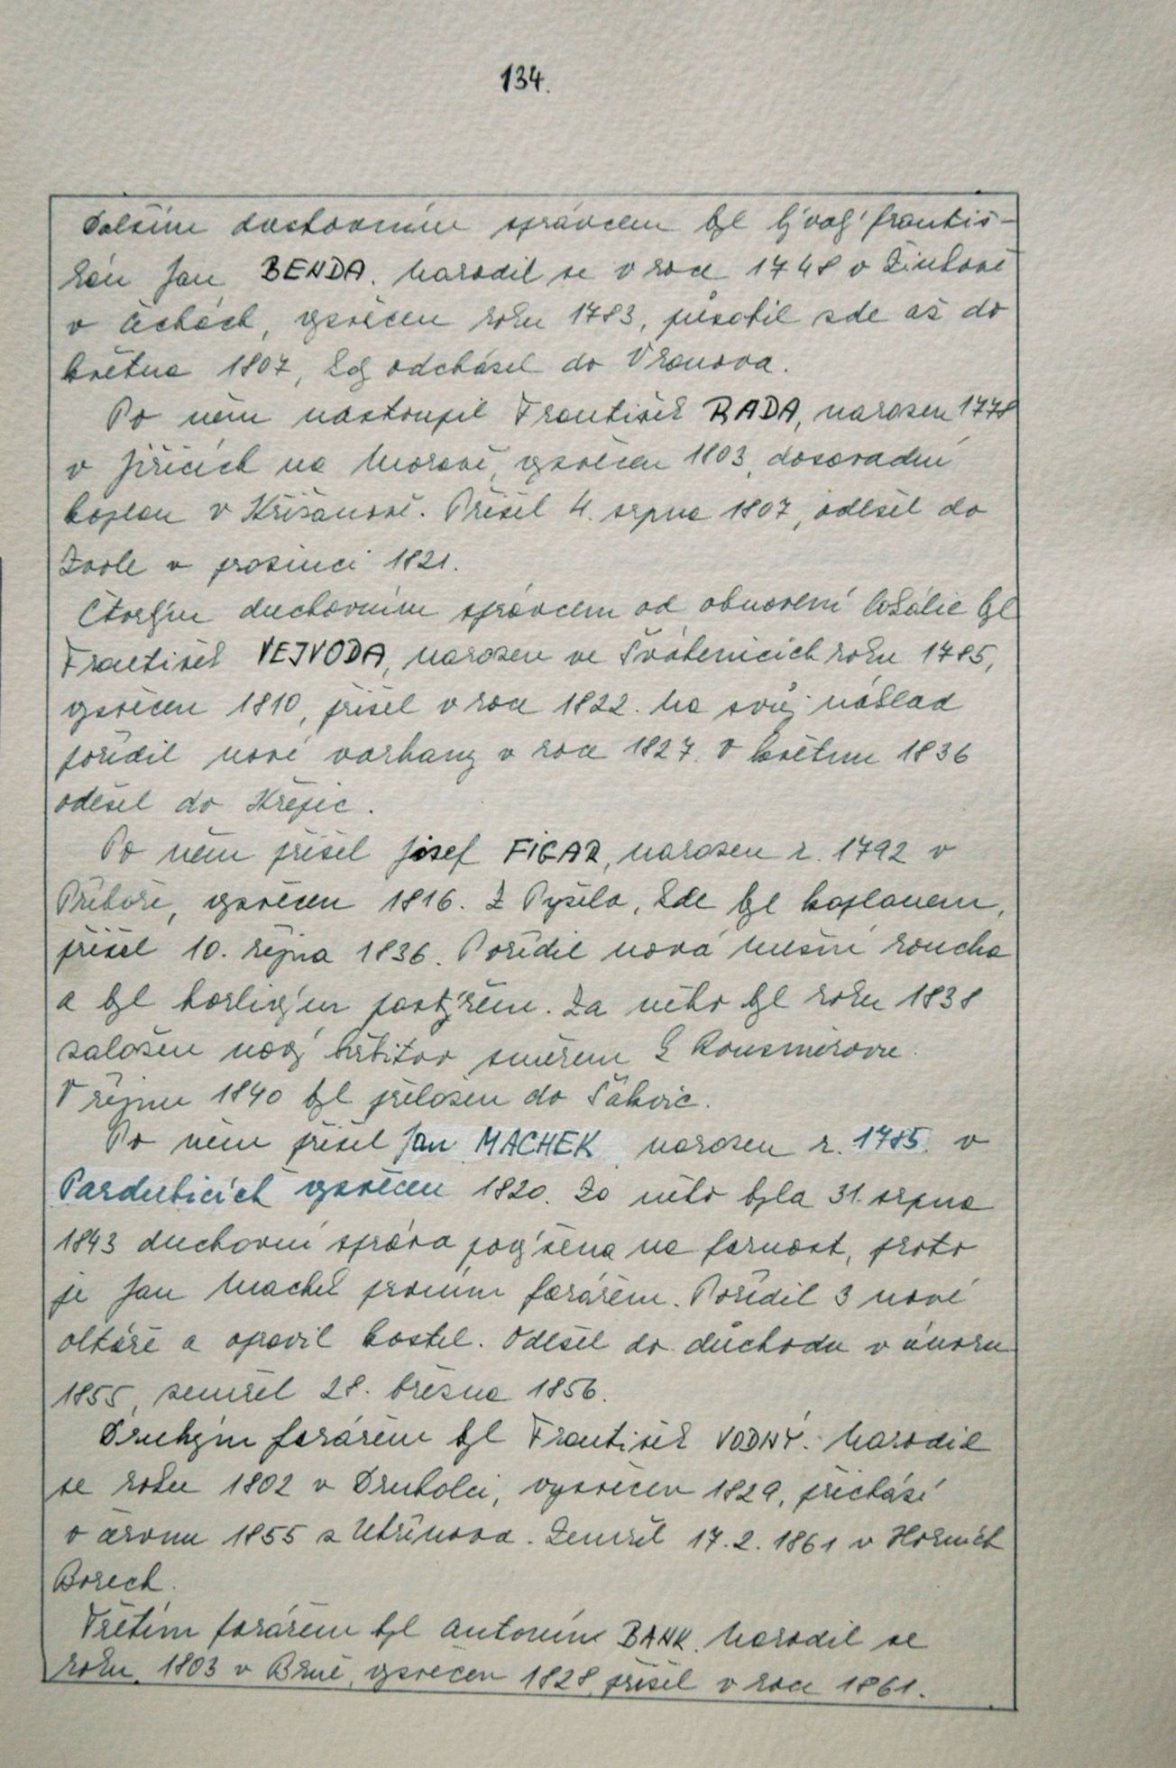 134.
Dalším duchovním správcem byl bývalý františ-
kán Jan BENDA. Narodil se v roce 1748 v Žinkově
v Čechách, vysvěcen roku 1783, působil zde až do
května 1807, kdy odcházel do Vranova.
Po něm nastoupil František RADA, narozen 1778
v Jiřicích na Moravě, vysvěcen 1803, dosavadní
kaplan v Křižanově. Přišel 4. srpna 1807, odešel do
Zvole v prosinci 1821.
Čtvrtým duchovním správcem od obnovení lokálie byl
František VEJVODA, narozen ve Švábenicích roku 1785,
vysvěcen 1810, přišel v roce 1822. Na svůj náklad
pořídil nové varhany v roce 1827. V květnu 1836
odešel do Křepic.
Po něm přišel Josef FIGAR, narozen r. 1792 v
Příboře, vysvěcen 1816. Z Pyšela, kde byl kaplanem,
přišel 10. října 1836. Pořídil nová mešní roucha
a byl horlivým pastýřem. Za něho byl roku 1838
založen nový hřbitov směrem k Rousměrovu.
V říjnu 1840 byl přeložen do Šakvic.
Po něm přišel Jan MACHEK, narozen r. 1785. v
Pardubicích vysvěcen 1820. Za něho byla 31. srpna
1843 duchovní správa povýšena na farnost, proto
je Jan Machek prvním farářem. Pořídil 3 nové
oltáře a opravil kostel. Odešel do důchodu v únoru
1855, zemřel 28. března 1856.
Druhým farářem byl František VODNÝ. Narodil
se roku 1802 v Brtnici, vysvěcen 1829, přichází
v červnu 1855 z Uhřínova. Zemřel 17. 2. 1861 v Horních
Borech.
Třetím farářem byl Antonín BANK. Narodil se
roku 1803 v Brně, vysvěcen 1828, přišel v roce 1861.